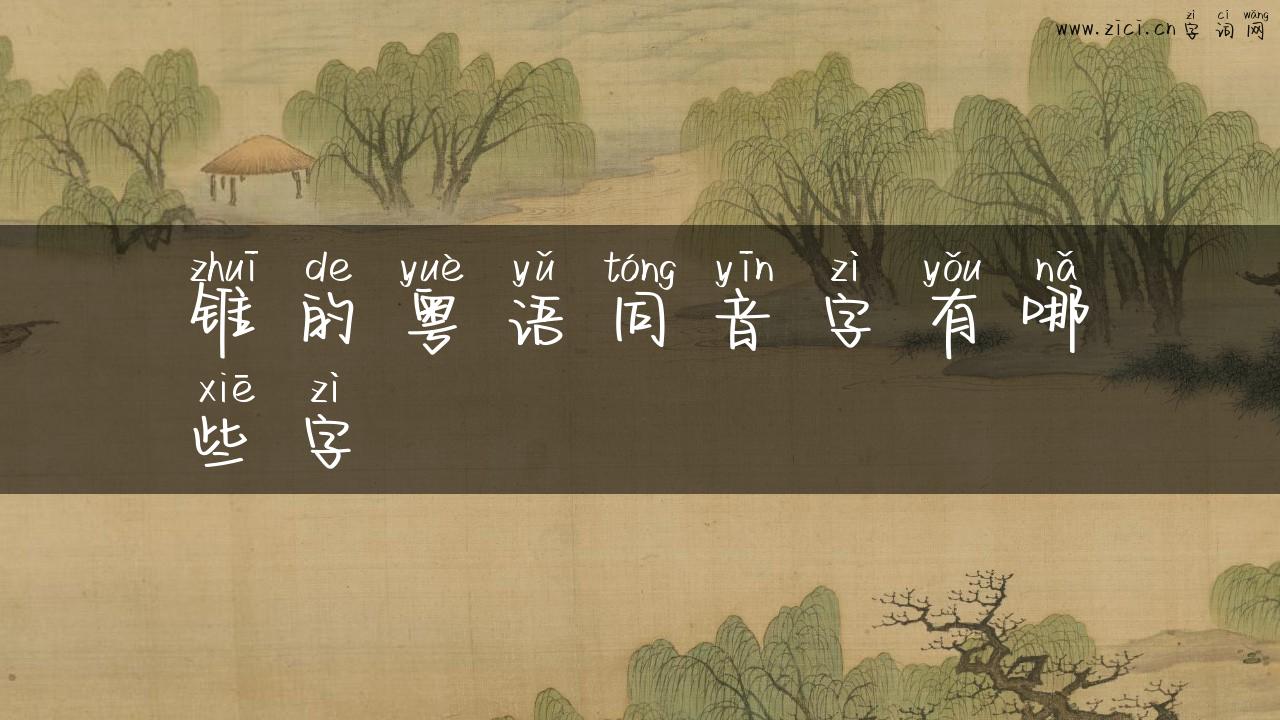 zì cí wǎng
www.zici.cn 字 词 网
zhuī de yuè yǔ tóng yīn zì yǒu nǎ
锥 的 粤 语 同 音 字 有 哪
xiē zì
些 字